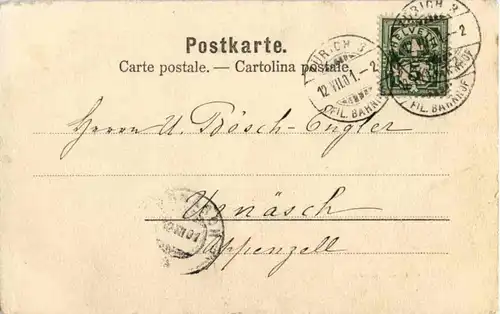 Postkarte.
Carte postale. — Cartolina postale.
ZÜRICH 3
12.VII.01.-2
FIL. BAHNHOF
HELVETIA
5
FIL. BAHNHOF
Herrn U. Bösch-Engler
Urnäsch
Appenzell